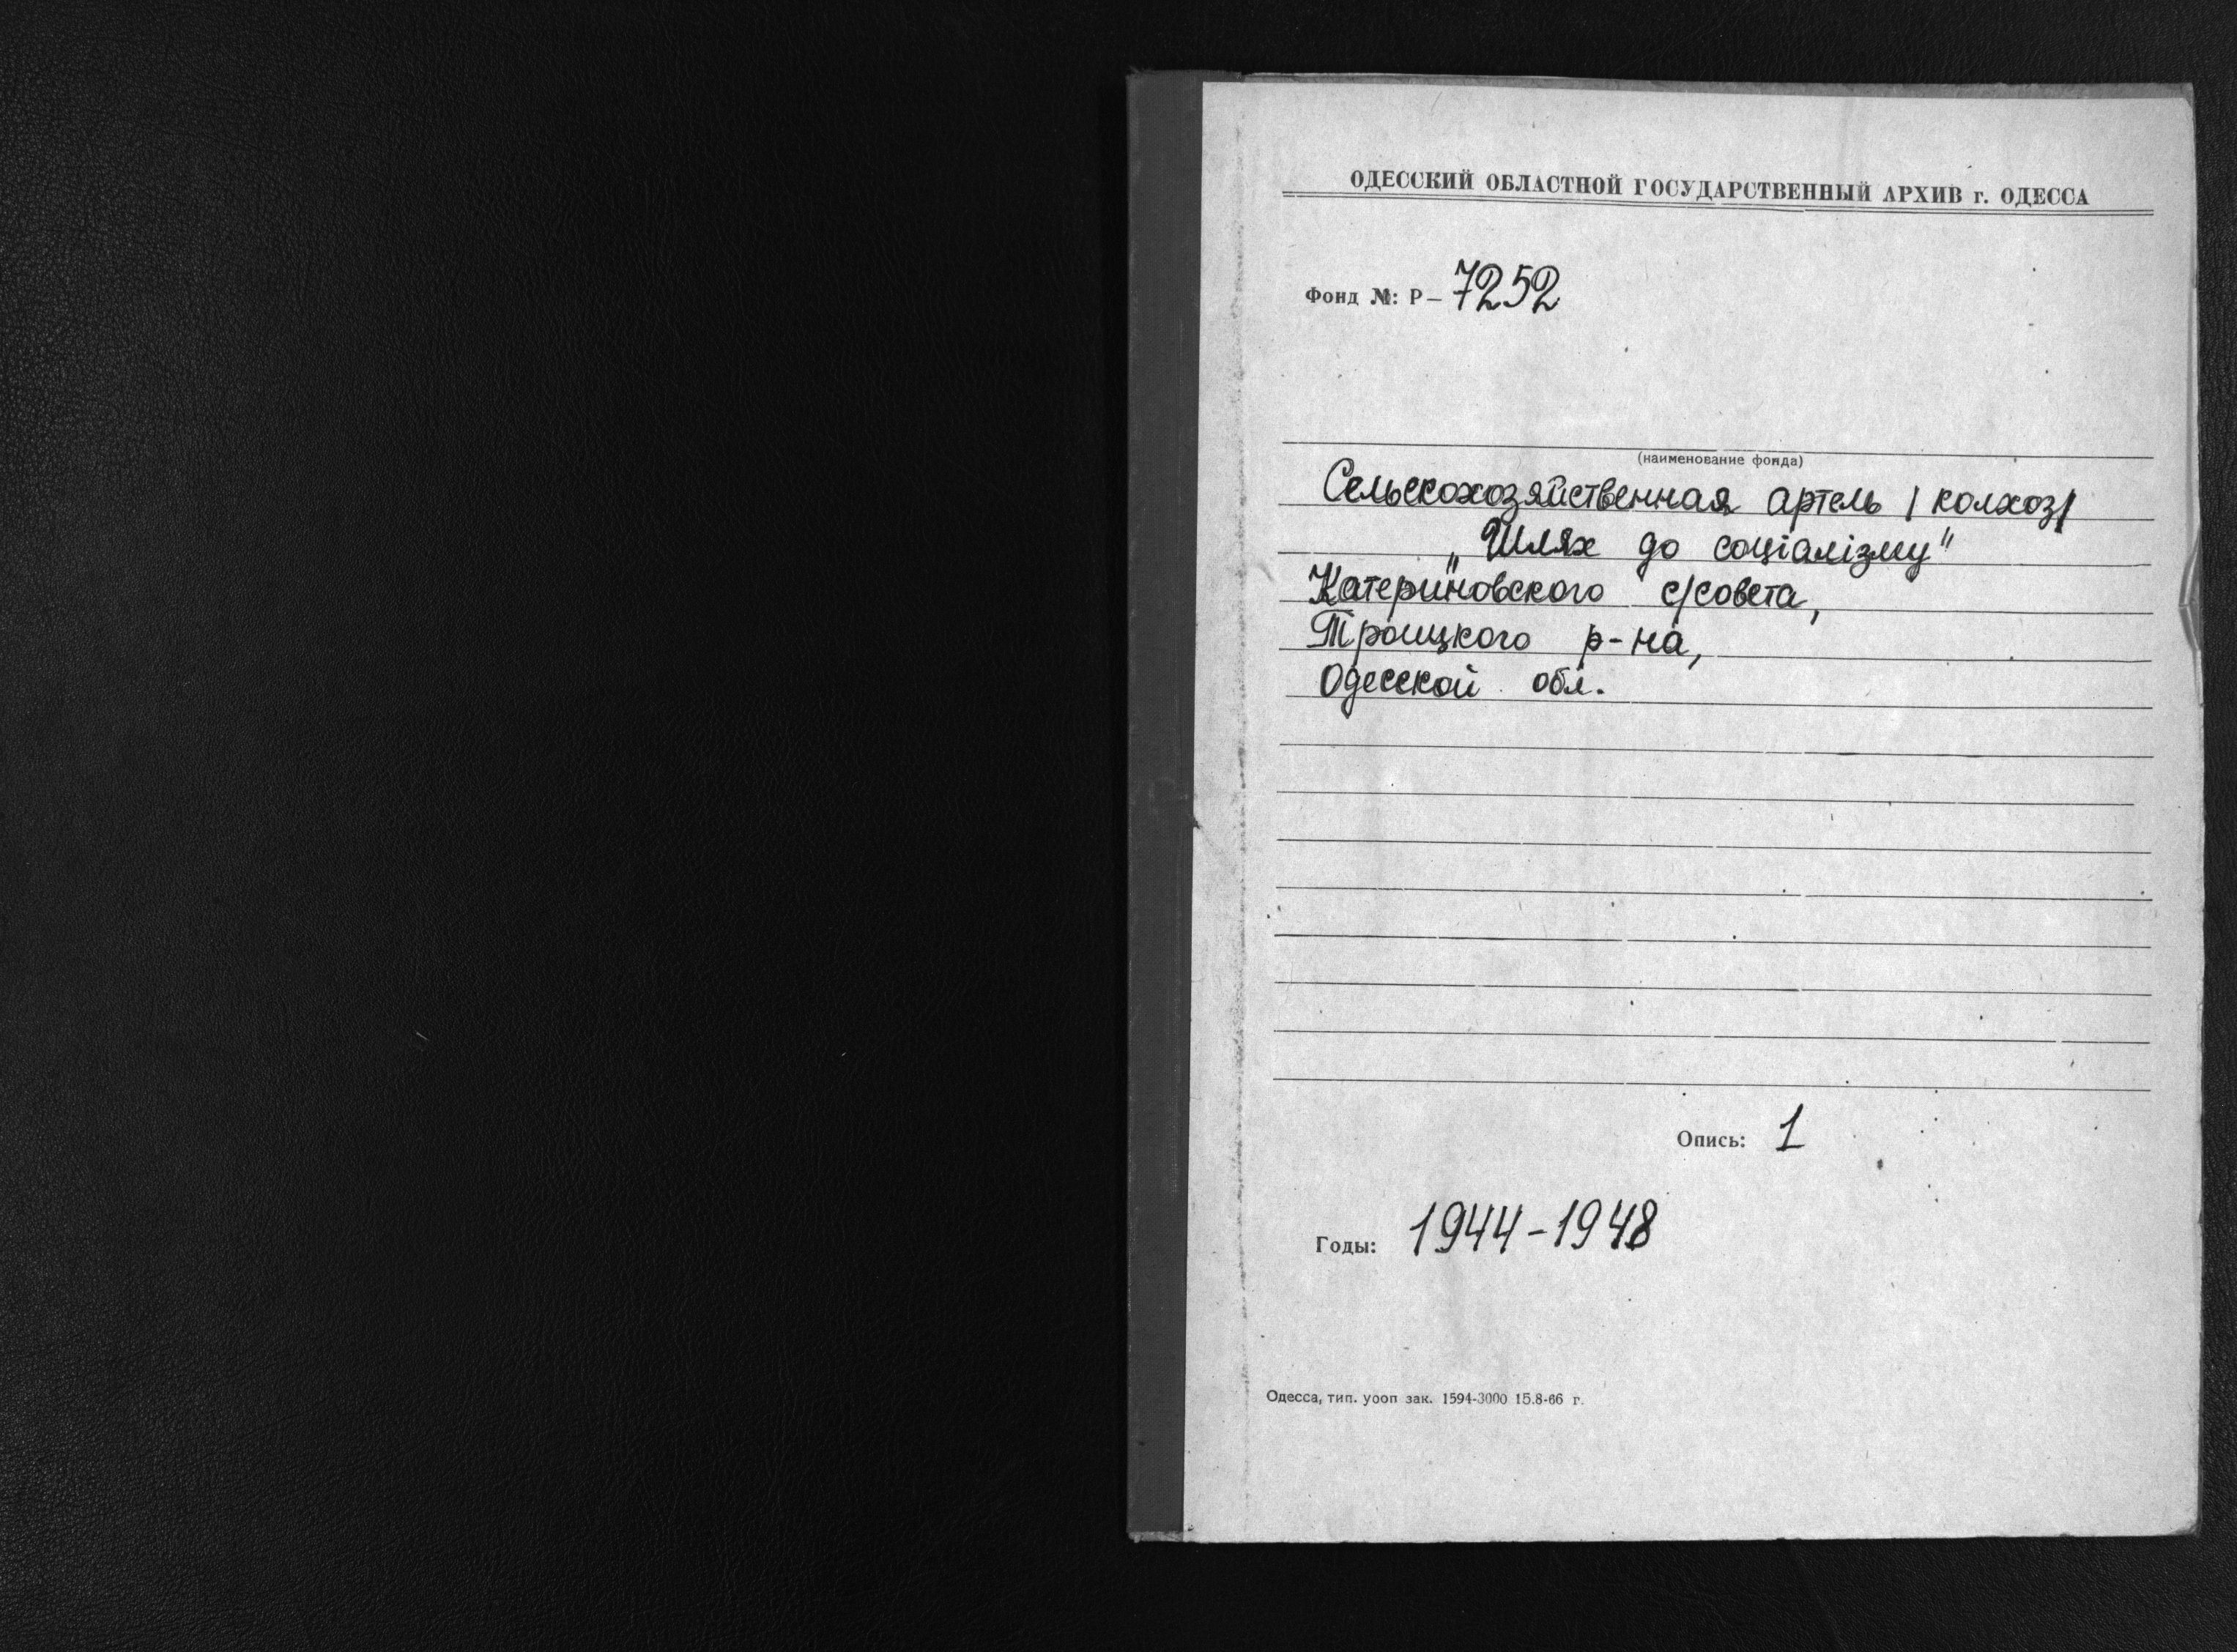 ОДЕССКИЙ ОБЛАСТНОЙ ГОСУДАРСТВЕННЫЙ АРХИВ г. ОДЕССА
Фонд №: Р— 7252
(наименование фонда)
Сельскохозяйственная артель /колхоз/
„Шлях до соціалізму"
Катериновского с/совета,
Троицкого р-на,
Одесской обл.
Опись: 1
Годы: 1944-1948
Одесса, тип. уооп зак. 1594-3000 15.8-66 г.